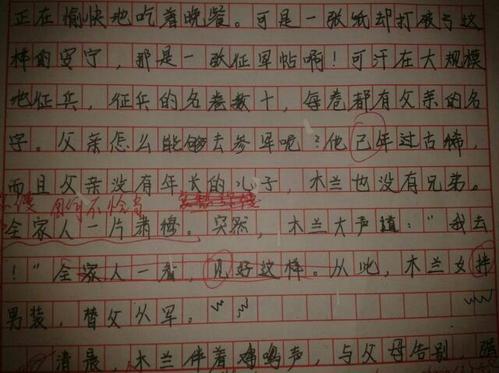 正在愉快地吃着晚餐。可是一张纸却打破了这
样的安宁，那是一张征军帖啊！可汗在大规模
地征兵，征兵的名卷数十，每卷都有父亲的名
字。父亲怎么能够去参军呢？他己年过古稀，
而且父亲没有年长的儿子，木兰也没有兄弟。
不恰当
全家人一片肃穆。突然，木兰大声道：“我去
！”全家人一看，见好这样。从此，木兰女
男装，替父从军。
清晨，木兰伴着鸡鸣声，与父母告别，